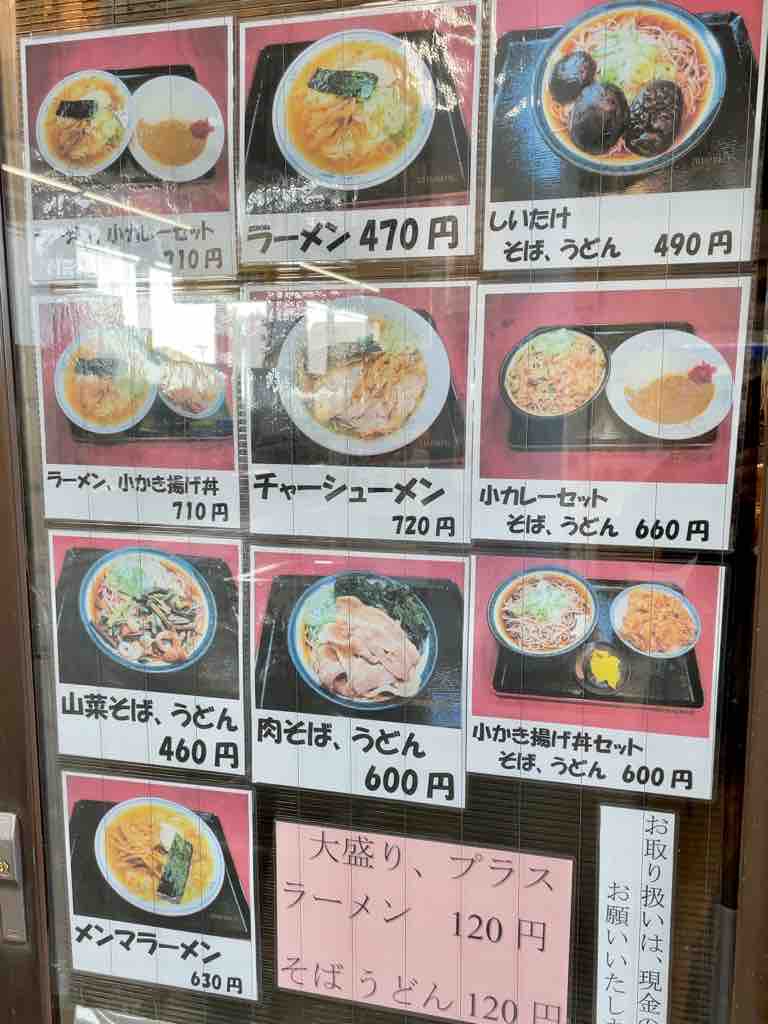 小カレーセット
710円
ラーメン 470円
しいたけ
そば、うどん 490円
ラーメン、小かき揚げ丼
710円
チャーシューメン
720円
小カレーセット
そば、うどん 660円
山菜そば、うどん
460円
肉そば、うどん
600円
小かき揚げ丼セット
そば、うどん 600円
メンマラーメン
630円
大盛り、プラス
ラーメン 120円
そばうどん 120円
お取り扱いは、現金の
お願いいたしま